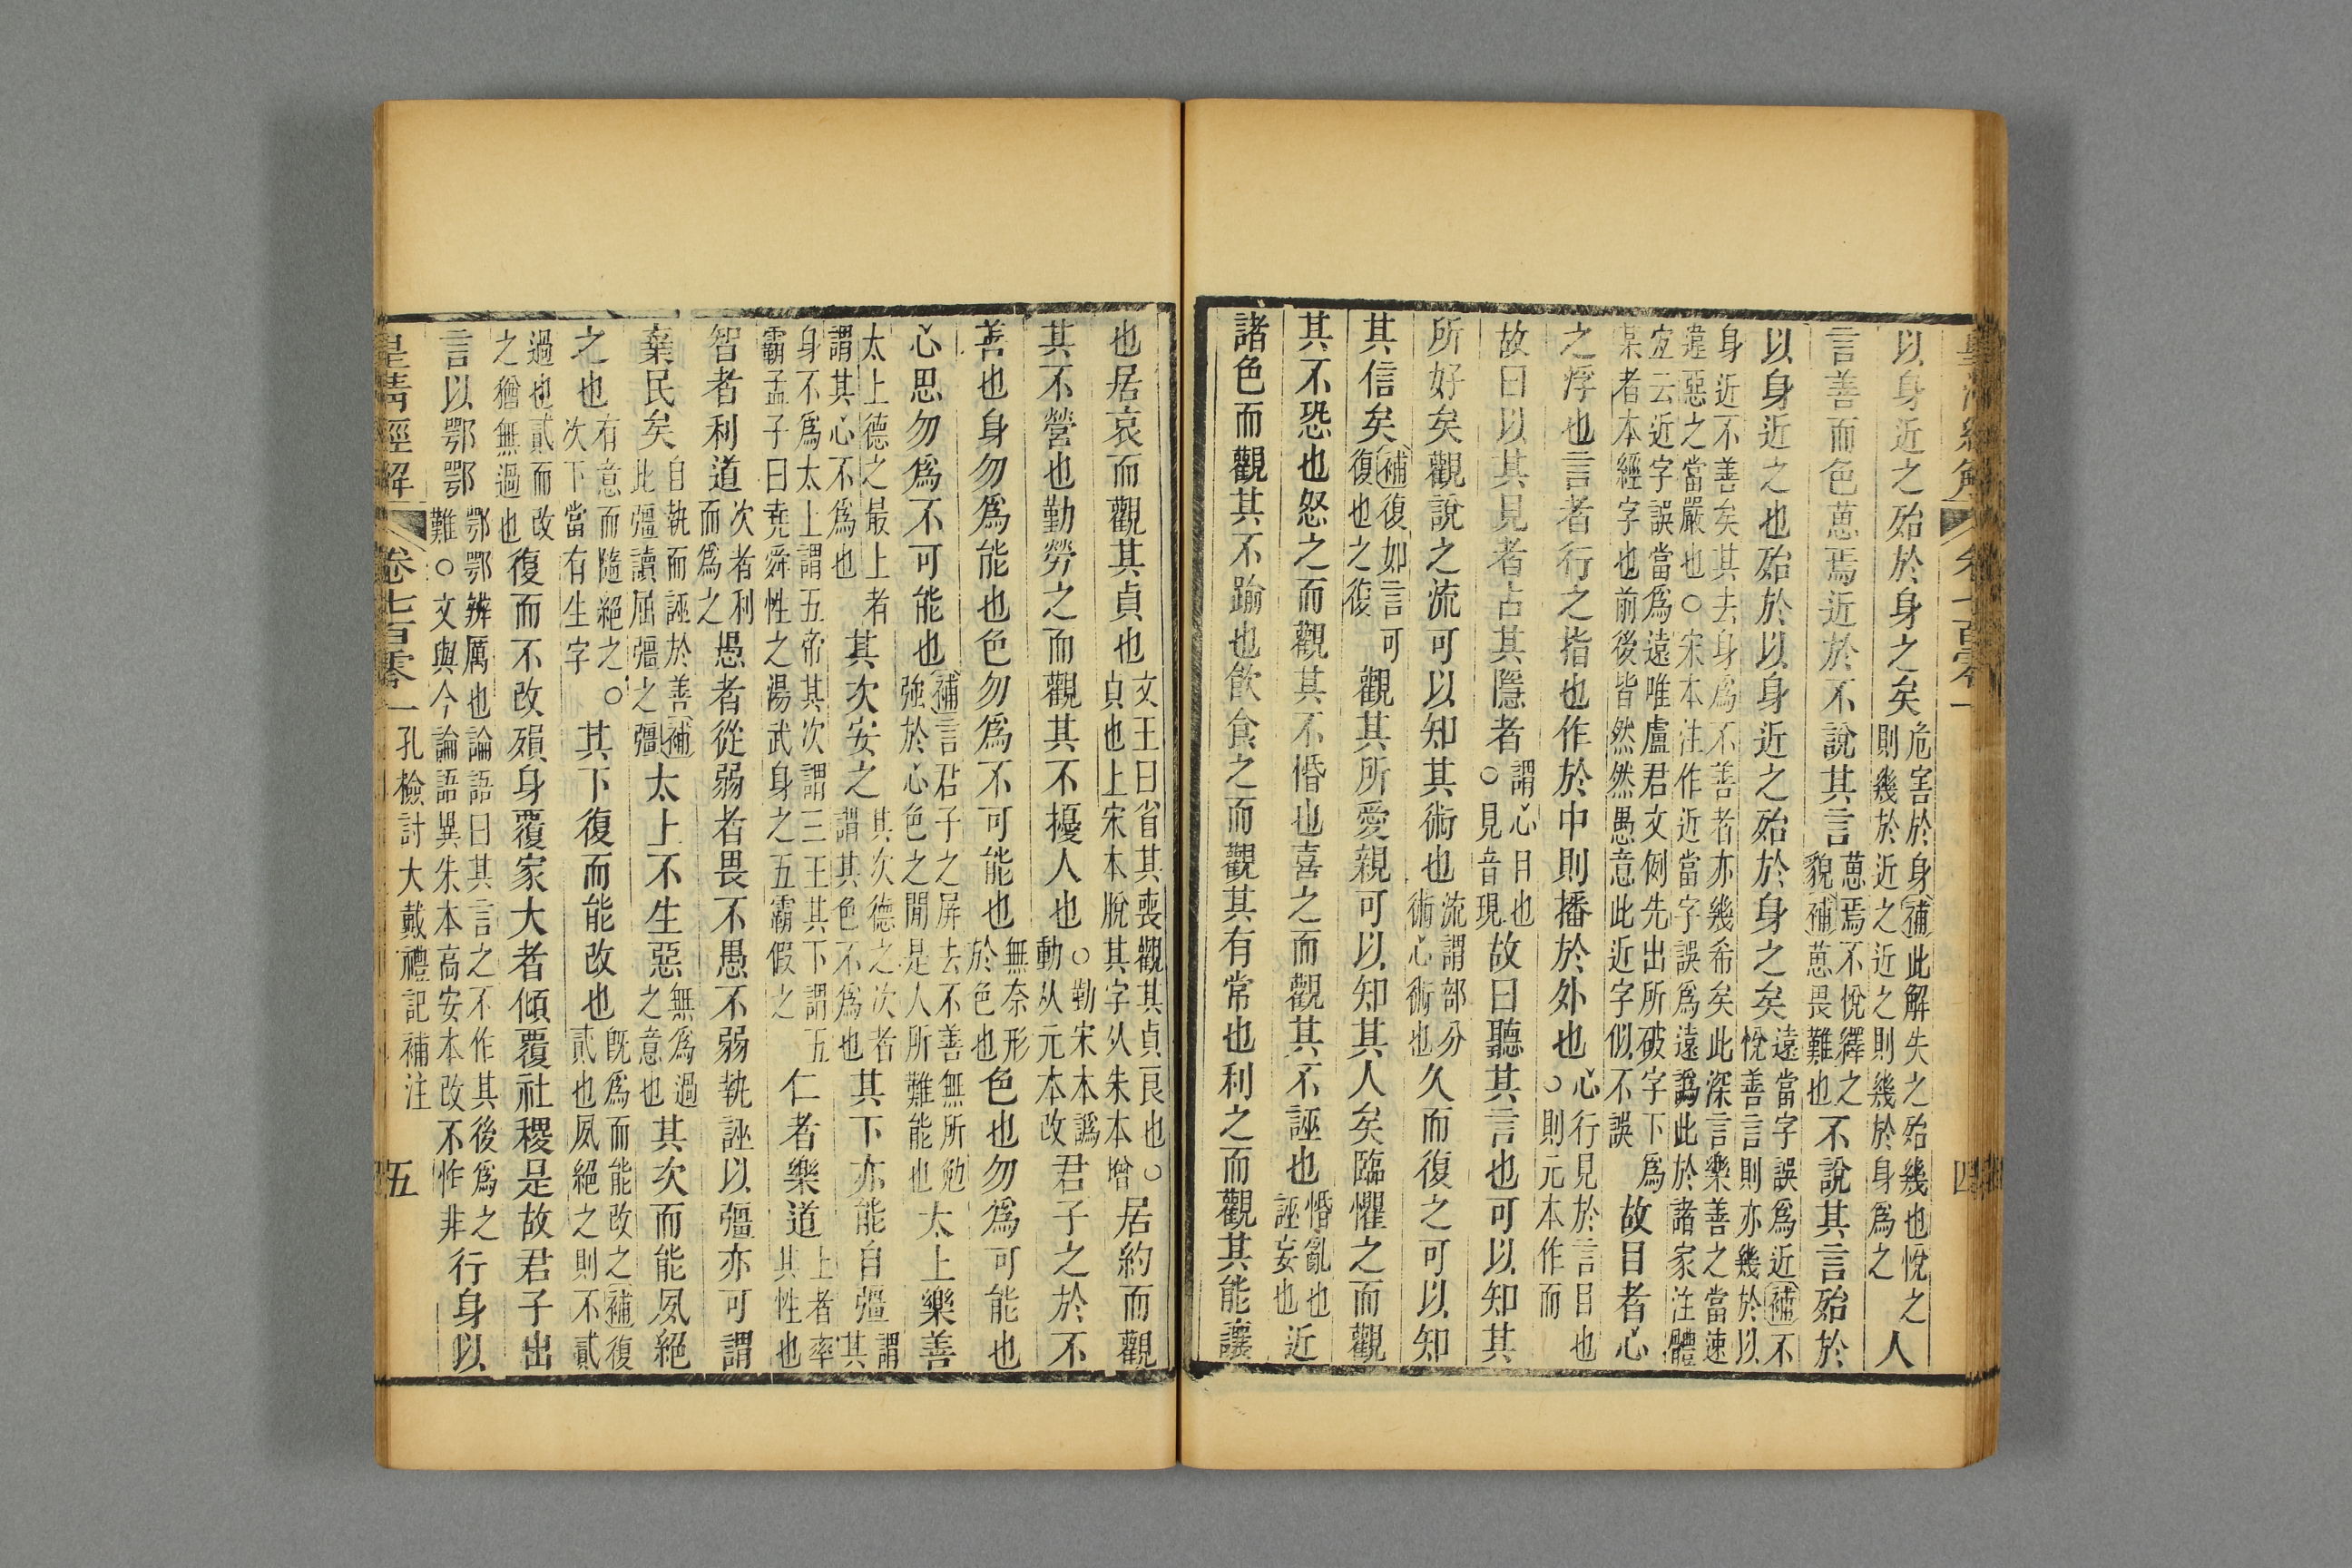 皇清經解 卷七百零一 四
以身近之殆於身之矣危害於身補此解失之殆幾也悅之則幾於近之近之則幾於身爲之人
言善而色葸焉近於不說其言葸焉不悅繹之貌補葸畏難也不說其言殆於
以身近之也殆於以身近之殆於身之矣遠當字誤爲近補不悅善言則亦幾於以
身近不善矣其去身爲不善者亦幾希矣此深言樂善之當速違惡之當嚴也○宋本注作近當字誤爲遠譌此於諸家注體
宐云近字誤當爲遠唯盧君文例先出所破字下爲某者本經字也前後皆然然愚意此近字似不誤故目者心
之浮也言者行之指也作於中則播於外也心行見於言目也○則元本作而
故曰以其見者占其隱者謂心目也○見音現故曰聽其言也可以知其
所好矣觀說之流可以知其術也流謂部分術心術也久而復之可以知
其信矣補復如言可復也之復觀其所愛親可以知其人矣臨懼之而觀
其不恐也怒之而觀其不惛也喜之而觀其不誣也惛亂也誣妄也近
諸色而觀其不踰也飲食之而觀其有常也利之而觀其能讓
也居哀而觀其貞也文王曰省其喪觀其貞良也○貞也上宋本脫其字从朱本增居約而觀
其不營也勤勞之而觀其不擾人也○勤宋本譌動从元本改君子之於不
善也身勿爲能也色勿爲不可能也無奈形於色也色也勿爲可能也
心思勿爲不可能也補言君子之屏去不善無所勉強於心色之閒是人所難能也太上樂善
太上德之最上者謂其心不爲也其次安之其次德之次者謂其色不爲也其下亦能自彊謂其
身不爲太上謂五帝其次謂三王其下謂五霸孟子曰堯舜性之湯武身之五霸假之仁者樂道上者率其性也
智者利道次者利而爲之愚者從弱者畏不愚不弱執誣以彊亦可謂
棄民矣自執而誣於善補此彊讀屈彊之彊太上不生惡無爲過之意也其次而能夙絕
之也有意而隨絕之○次下當有生字其下復而能改也旣爲而能改之補復貳也夙絕之則不貳
過也貳而改之猶無過也復而不改殞身覆家大者傾覆社稷是故君子出
言以鄂鄂鄂鄂辨厲也論語曰其言之不作其後爲之難○文與今論語異朱本高安本改不怍非行身以
皇清經解 卷七百零一 孔檢討大戴禮記補注 五